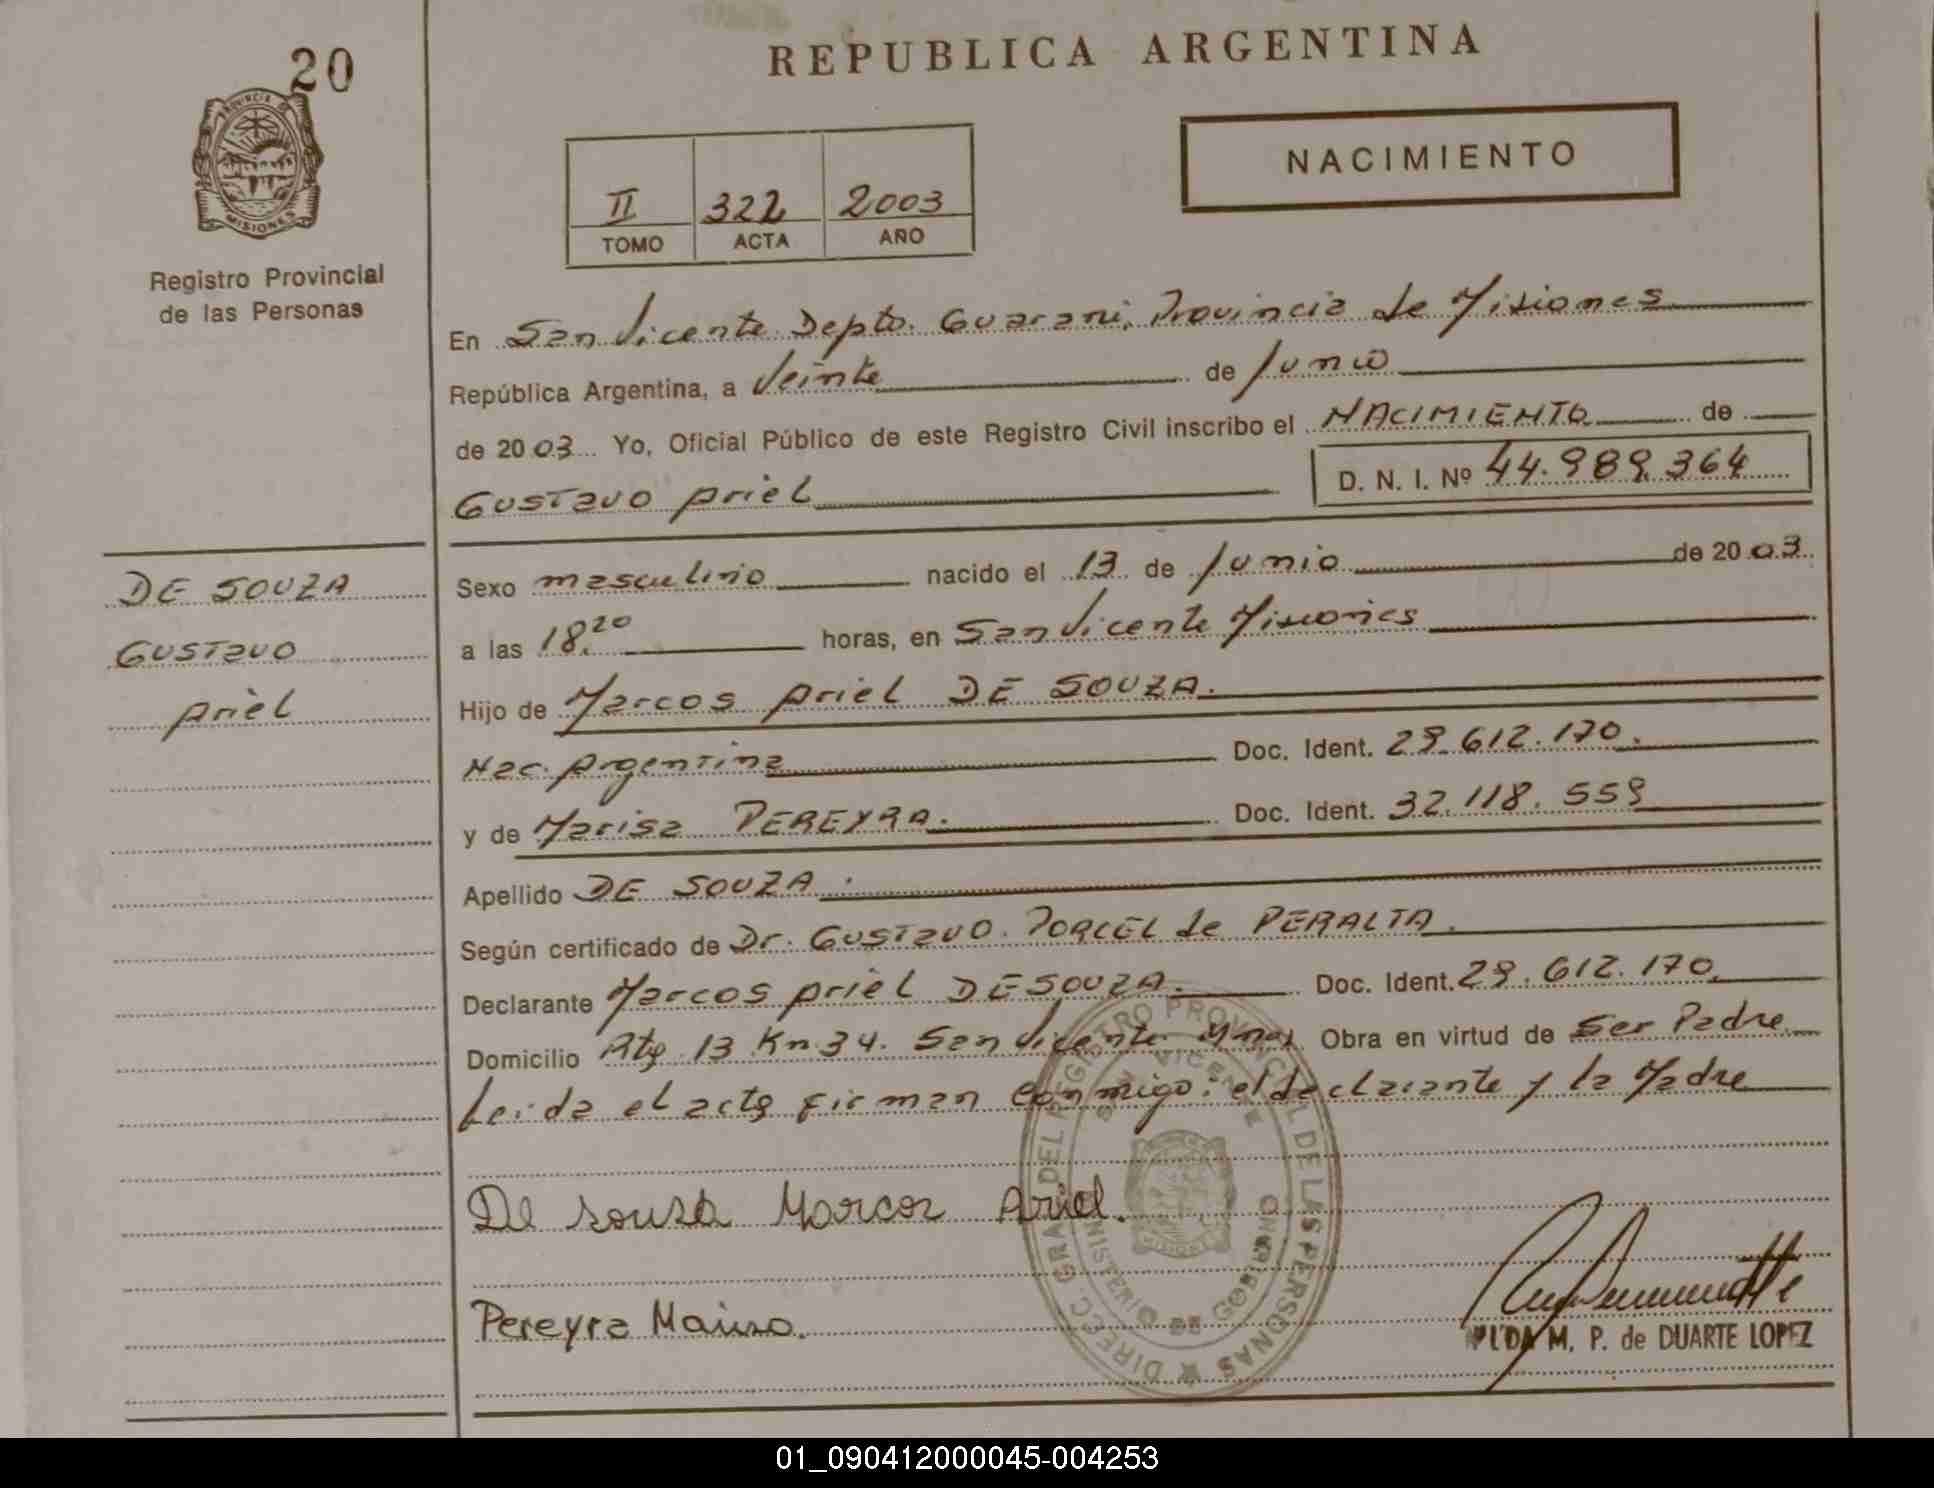 20
PROVINCIA DE
MISIONES
Registro Provincial
de las Personas
REPUBLICA ARGENTINA
NACIMIENTO
II 322 2003
TOMO ACTA AÑO
En San Vicente Depto. Guarani, Provincia de Misiones
República Argentina, a Veinte de Junio
de 2003 Yo, Oficial Público de este Registro Civil inscribo el NACIMIENTO de
Gustavo Ariel D. N. I. Nº 44.989.364
DE SOUZA
Gustavo
Ariel
Sexo masculino nacido el 13 de Junio de 2003
a las 18.20 horas, en San Vicente Misiones
Hijo de Marcos Ariel DE SOUZA.
Nac. Argentina Doc. Ident. 29.612.170.
y de Marisa PEREYRA. Doc. Ident. 32.118.559
Apellido DE SOUZA.
Según certificado de Dr. Gustavo PORCEL de PERALTA.
Declarante Marcos Ariel DE SOUZA. Doc. Ident. 29.612.170.
Domicilio Rta 13 Km 34. San Vicente Mnes Obra en virtud de Ser Padre
Leida el acta firman conmigo: el declarante y la Madre
De souza Marcos Ariel.
Pereyra Marisa.
DIREC. GRAL DEL REGISTRO PROVINCIAL DE LAS PERSONAS
SAN VICENTE
MINISTERIO DE GOBIERNO
MISIONES
M. P. de DUARTE LOPEZ
01_090412000045-004253